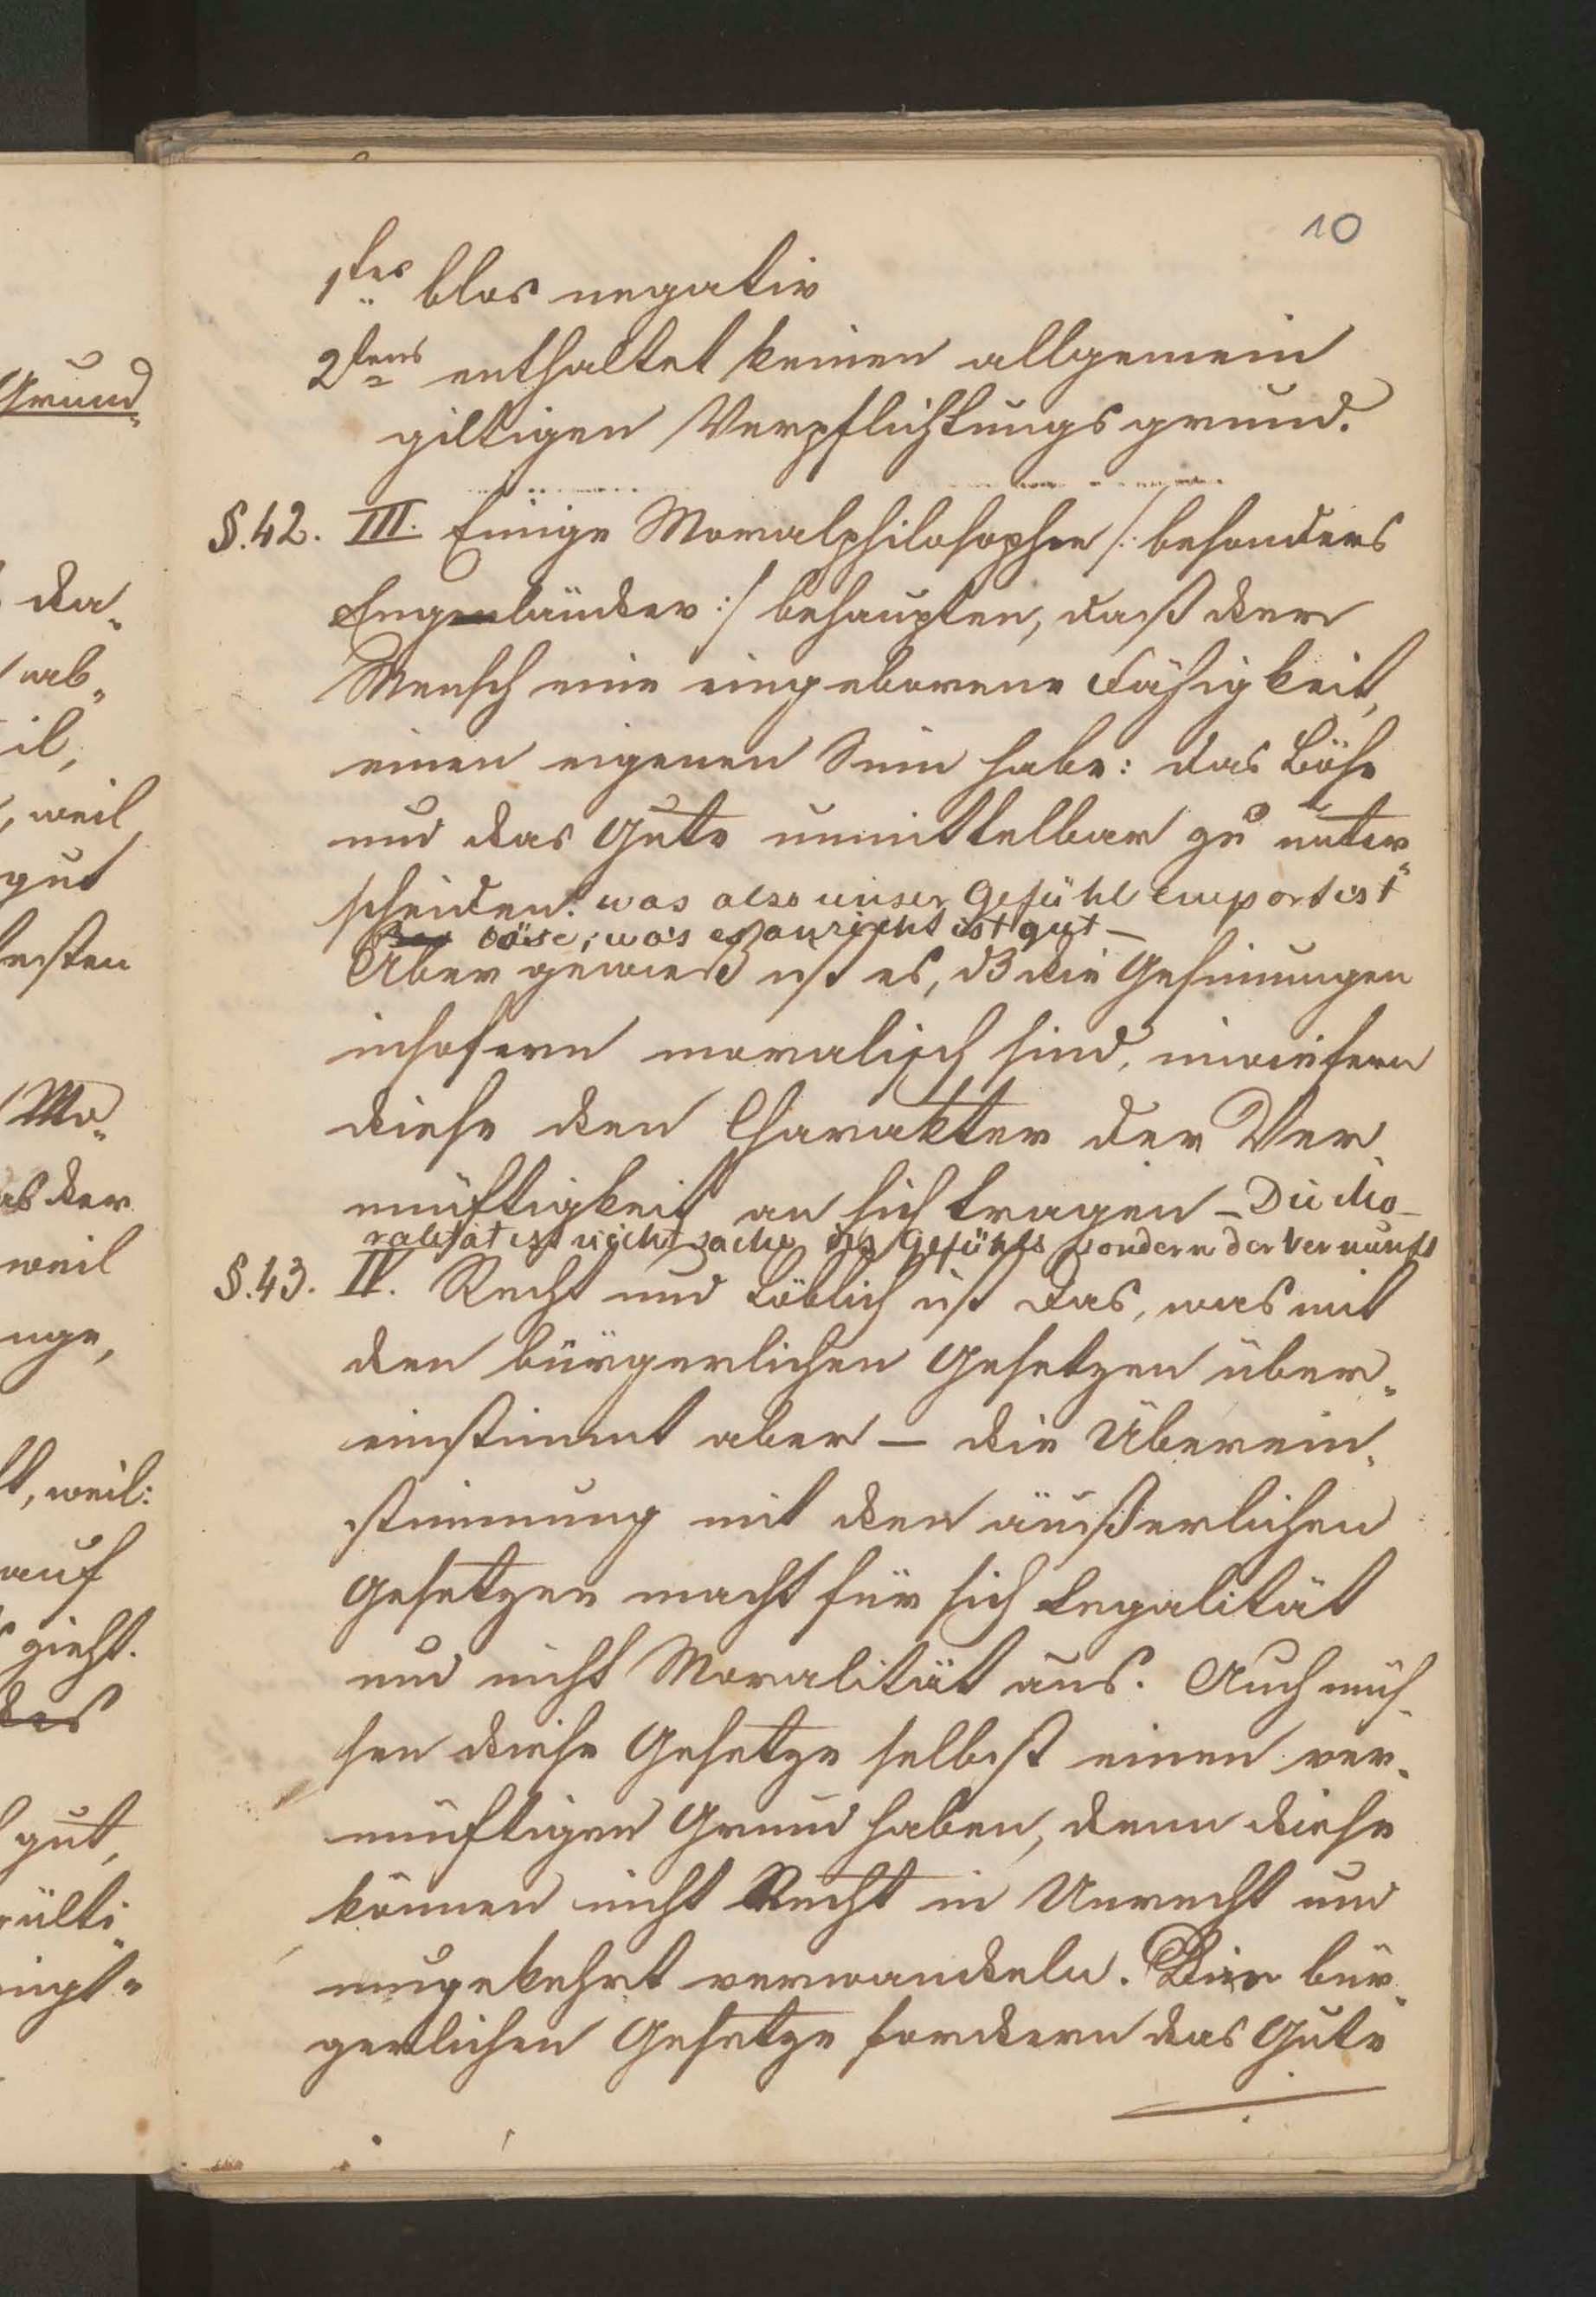 Grund„
da„
ab„
il,
, weil
gut
ersten
Mo„
as der
weil
nge,
t, weil:
auf
zieht.
des
gut,
ülti„
ingt„
10
1tes blos negativ
2tens enthaltet keinen allgemein
giltigen Verpflichtungsgrund.
§.42. III. Einige Moralphilosophen /: besonders
Engenländer :/ behaupten, daß der
Mensch eine eingeborene Fähigkeit,
einen eigenen Sinn habe: das Böse
und das Gute unmittelbar zu unter„
scheiden: was also unser Gefühl emport ist
böse; was es anzieht ist gut —
Aber gewieß ist es, dß die Gesinnungen
insofern moralisch sind, inwiefern
diese den Charakter der Ver„
nünftigkeit an sich tragen – Die Mo–
ralität ist nicht sache des Gefühls sondern der Vernunft
§.43. IV. Recht und Löblich ist das, was mit
den bürgerlichen Gesetzen über„
einstimmt aber — die Überein„
stimmung mit den äußerlichen
Gesetzen macht für sich Legalität
und nicht Moralität aus. Auch müs„
sen diese Gesetze selbst einen ver„
nünftigen Grund haben, denn diese
können nicht Recht in Unrecht und
umgekehrt verwandeln. Die bür„
gerlichen Gesetze fordern das Gute